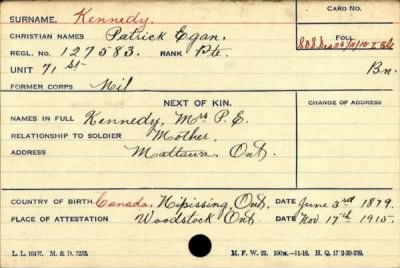 SURNAME. Kennedy. CARD NO.
CHRISTIAN NAMES Patrick Egan. FOLL
REGL. NO. 127583. RANK Pte.
UNIT 71st Bn.
FORMER CORPS Nil
NEXT OF KIN. CHANGE OF ADDRESS
NAMES IN FULL Kennedy, Mrs P. E.
RELATIONSHIP TO SOLDIER Mother.
ADDRESS Mattawa, Ont.
COUNTRY OF BIRTH Canada, Nipissing, Ont. DATE June 3rd 1879.
PLACE OF ATTESTATION Woodstock Ont DATE Nov 17th 1915.
L. L. 10417. M. & D. 7253. M. F. W. 22. 100M.—11-16. H. Q. 1772-39-339.